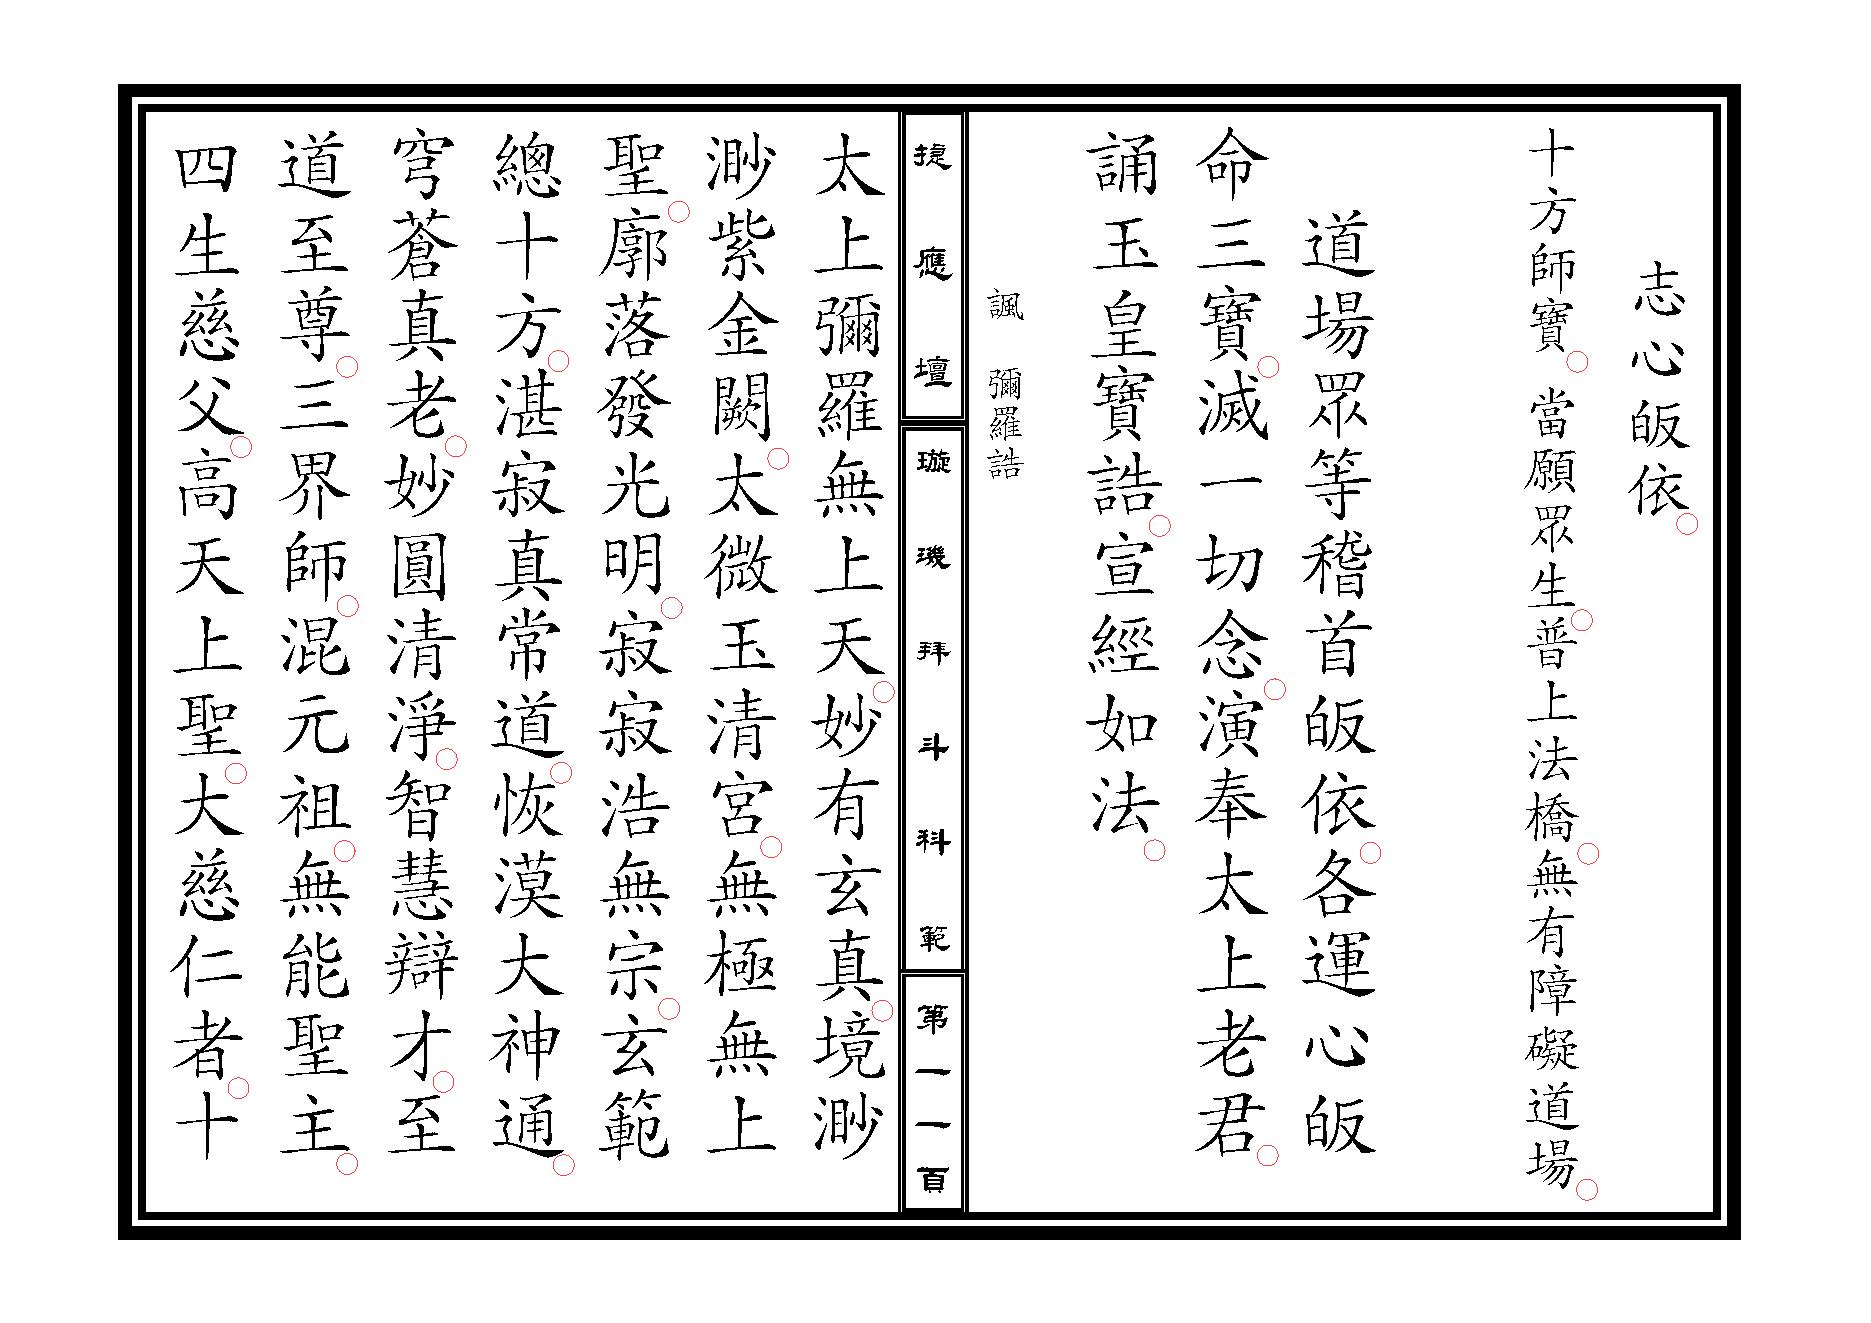 志心皈依○
十方師寶○當願眾生○普上法橋○無有障礙道場○
道場眾等稽首皈依○各運心皈
命三寶○滅一切念○演奉太上老君○
誦玉皇寶誥○宣經如法○
諷　彌羅誥
捷應壇
璇璣拜斗科範
第一一頁
太上彌羅無上天○妙有玄真○境渺
渺紫金闕○太微玉清宮○無極無上
聖○廓落發光明○寂寂浩無宗○玄範
總十方○湛寂真常道○恢漠大神通○
穹蒼真老○妙圓清淨○智慧辯才○至
道至尊○三界師○混元祖○無能聖主○
四生慈父○高天上聖○大慈仁者○十